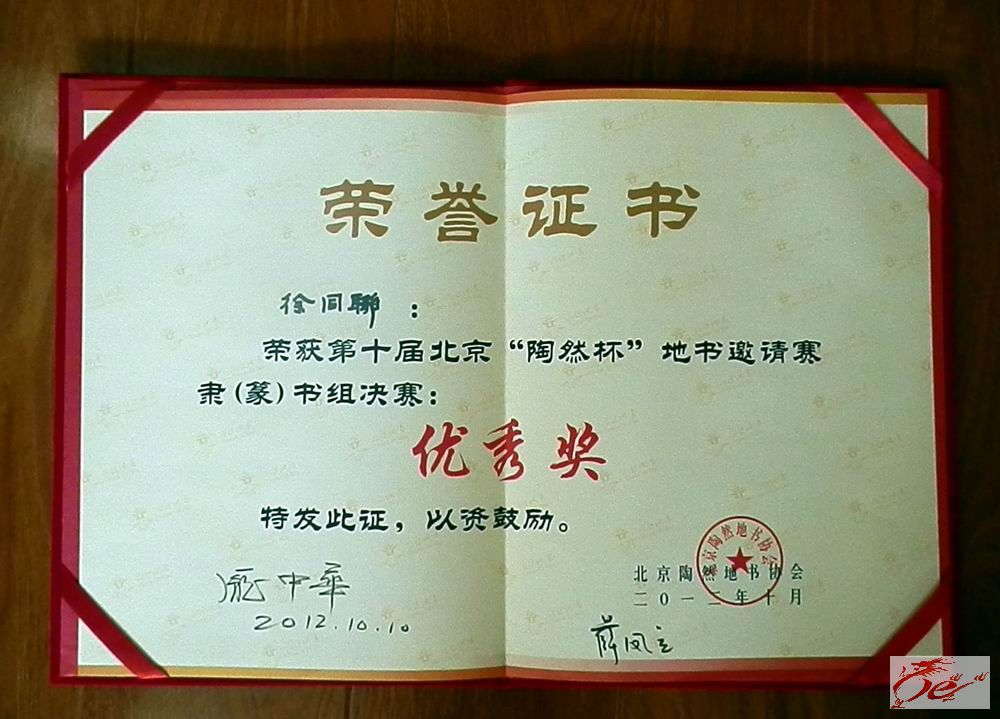 荣誉证书
徐同聯：
荣获第十届北京“陶然杯”地书邀请赛
隶(篆)书组决赛：
优秀奖
特发此证，以资鼓励。
北京陶然地书协会
北京陶然地书协会
二〇一二年十月
庞中华
2012.10.10
薛凤立